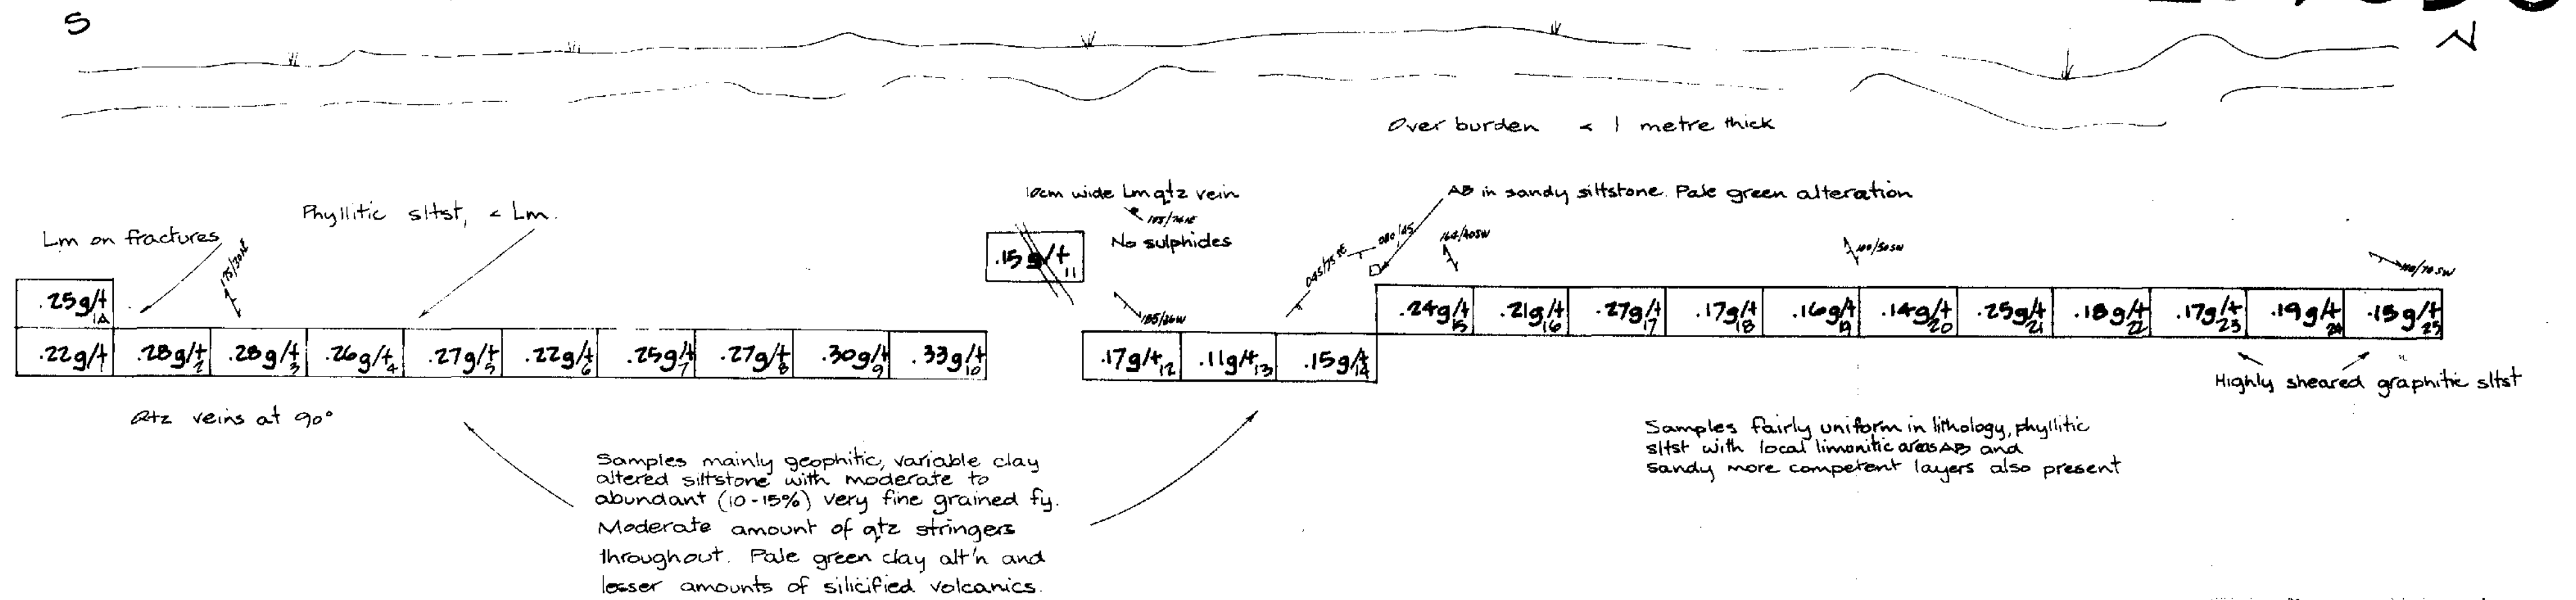 S
N
Over burden < 1 metre thick
10cm wide Lm qtz vein
No sulphides
AB in sandy siltstone. Pale green alteration
Phyllitic sltst, < Lm.
Lm on fractures
175/30W
045/75 SE
080/45
164/40SW
100/50SW
110/70 SW
.15g/t 11
.25g/t 1A
.22g/t 1
.28g/t 2
.28g/t 3
.26g/t 4
.27g/t 5
.22g/t 6
.25g/t 7
.27g/t 8
.30g/t 9
.33g/t 10
.17g/t 12
.11g/t 13
.15g/t 14
.24g/t 15
.21g/t 16
.27g/t 17
.17g/t 18
.16g/t 19
.14g/t 20
.25g/t 21
.18g/t 22
.17g/t 23
.19g/t 24
.15g/t 25
Highly sheared graphitic sltst
Qtz veins at 90°
Samples mainly geophitic, variable clay
altered siltstone with moderate to
abundant (10-15%) very fine grained fy.
Moderate amount of qtz stringers
throughout. Pale green clay alt'n and
lesser amounts of silicified volcanics.
Samples fairly uniform in lithology, phyllitic
sltst with local limonitic areas AB and
sandy more competent layers also present